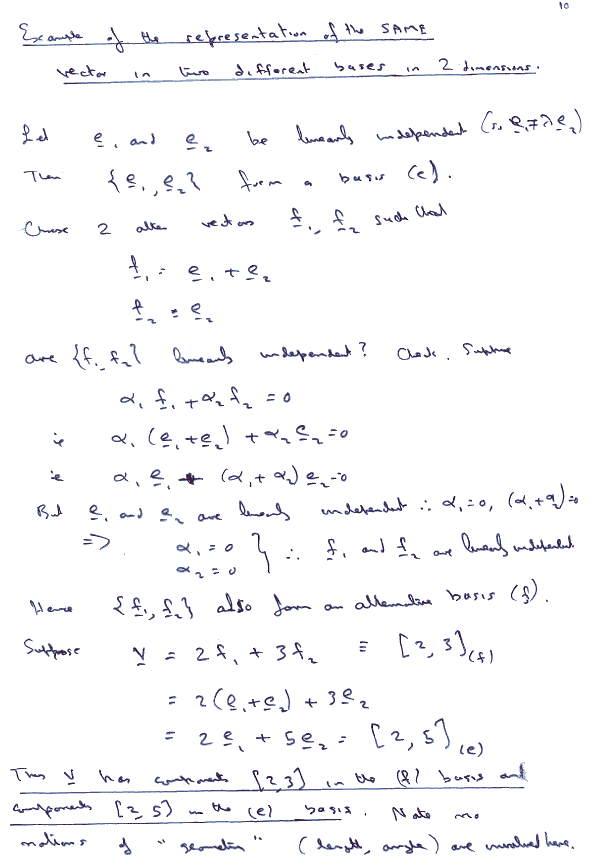 10
Example of the representation of the SAME
vector in two different bases in 2 dimensions.
Let e̲₁ and e̲₂ be linearly independent (so e̲₁≠λe̲₂)
Then {e̲₁, e̲₂} form a basis (e).
Choose 2 other vectors f̲₁, f̲₂ such that
f̲₁ = e̲₁ + e̲₂
f̲₂ = e̲₂
are {f̲₁, f̲₂} linearly independent? Check. Suppose
α₁ f̲₁ + α₂ f̲₂ = 0
ie α₁ (e̲₁ + e̲₂) + α₂ e̲₂ = 0
ie α₁ e̲₁ + (α₁ + α₂) e̲₂ = 0
But e̲₁ and e̲₂ are linearly independent ∴ α₁ = 0, (α₁+α₂)=0
=> α₁ = 0 } ∴ f̲₁ and f̲₂ are linearly independent
α₂ = 0
Hence {f̲₁, f̲₂} also form an alternative basis (f).
Suppose v̲ = 2f̲₁ + 3f̲₂ ≡ [2, 3](f)
= 2(e̲₁ + e̲₂) + 3e̲₂
= 2e̲₁ + 5e̲₂ = [2, 5](e)
Thus v̲ has components [2,3] in the (f) basis and
components [2, 5] in the (e) basis. Note no
notions of "geometry" (length, angle) are involved here.